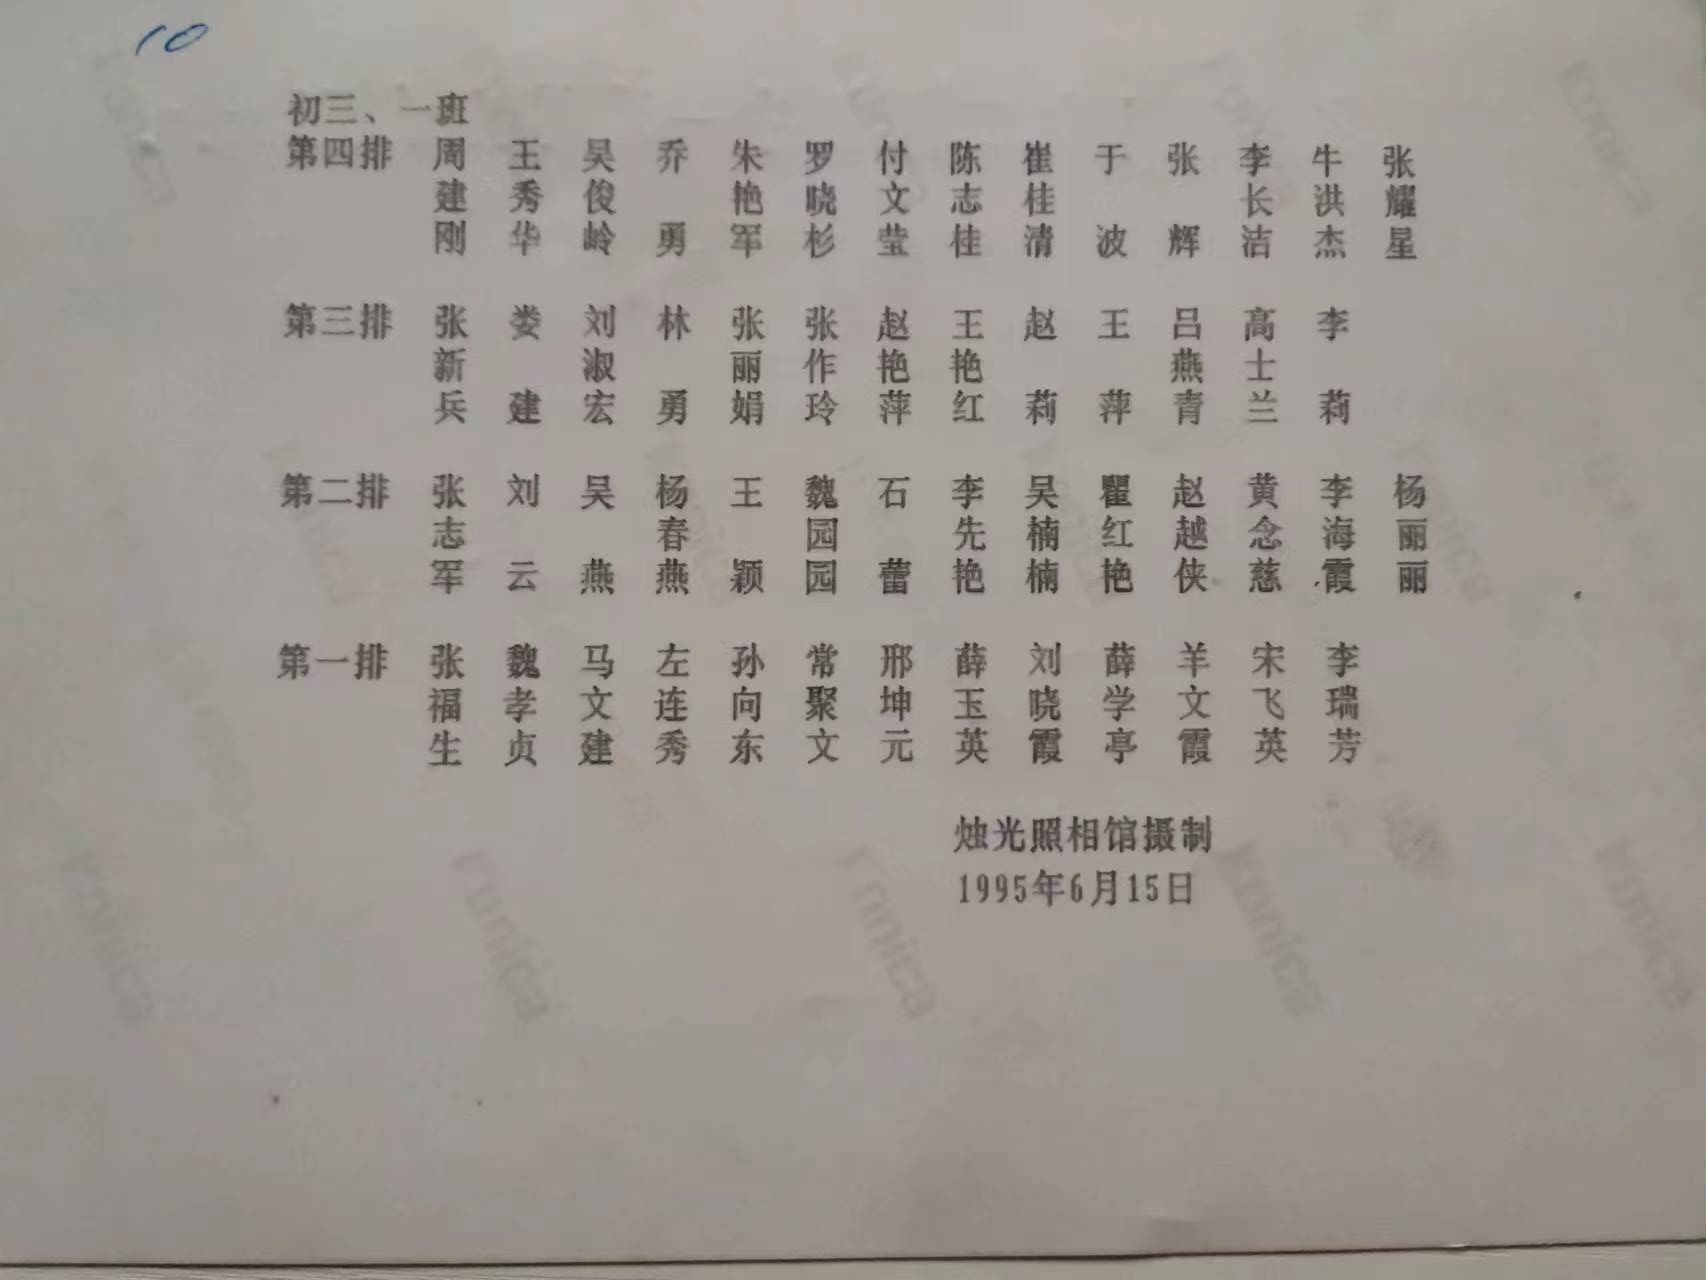 10
初三、一班
第四排 周建刚 王秀华 吴俊岭 乔勇 朱艳军 罗晓杉 付文莹 陈志桂 崔桂清 于波 张辉 李长洁 牛洪杰 张耀星
第三排 张新兵 娄建 刘淑宏 林勇 张丽娟 张作玲 赵艳萍 王艳红 赵莉 王萍 吕燕青 高士兰 李莉
第二排 张志军 刘云 吴燕 杨春燕 王颖 魏园园 石蕾 李先艳 吴楠楠 瞿红艳 赵越侠 黄念慈 李海霞 杨丽丽
第一排 张福生 魏孝贞 马文建 左连秀 孙向东 常聚文 邢坤元 薛玉英 刘晓霞 薛学亭 羊文霞 宋飞英 李瑞芳
烛光照相馆摄制
1995年6月15日
Konica
Konica
Konica
Konica
Konica